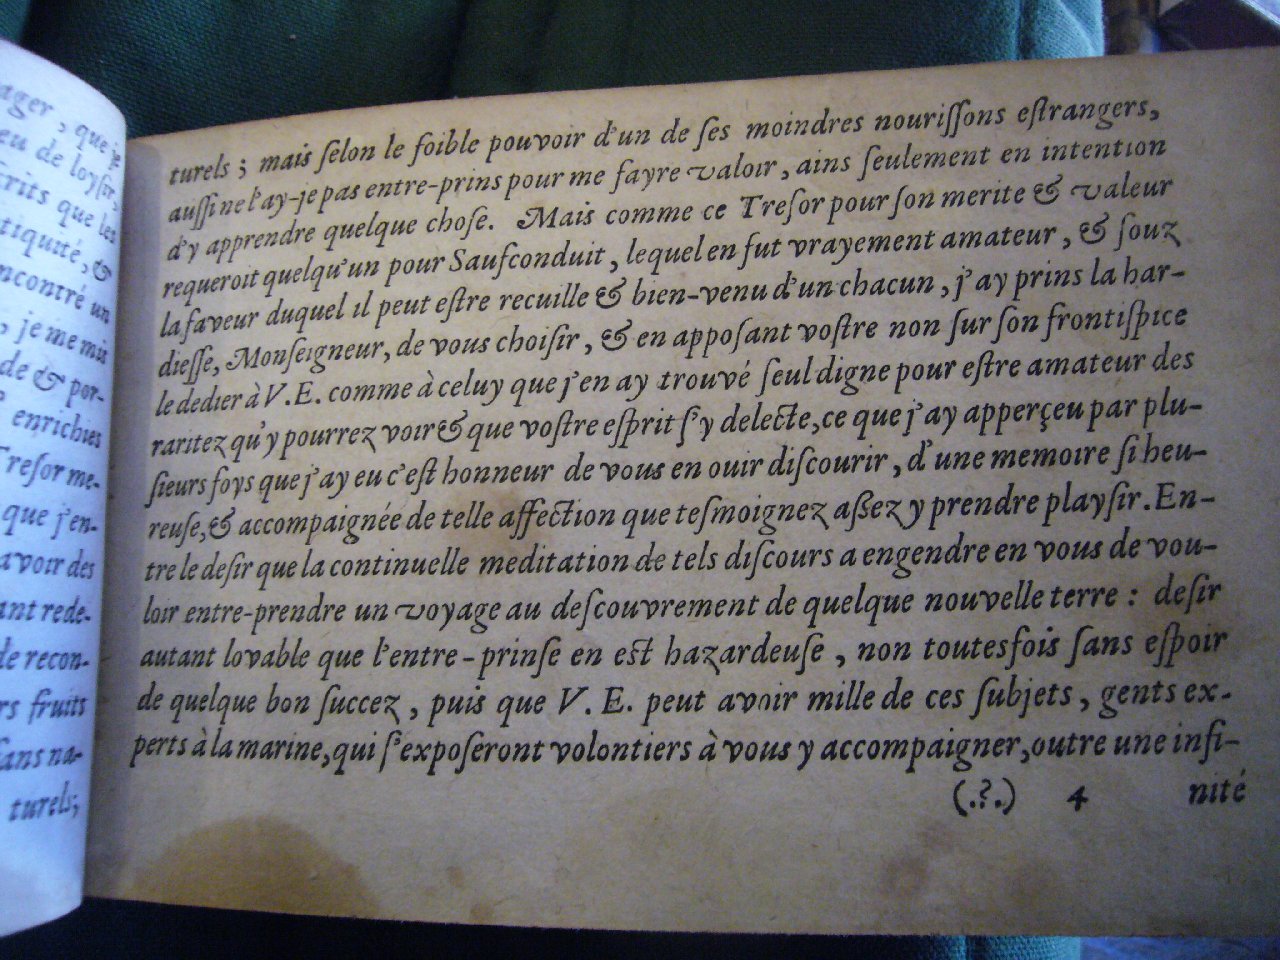 ager, que je
eu de loyſir,
crits que les
tiquité, &
ncontré un
, je me mis
de & por-
enrichies
Treſor me-
que j'en-
avoir des
ant rede-
de recon-
rs fruits
ſans na-
turels;
turels ; mais ſelon le foible pouvoir d'un de ſes moindres nouriſſons eſtrangers,
auſſi ne l'ay-je pas entre-prins pour me fayre valoir, ains ſeulement en intention
d'y apprendre quelque choſe. Mais comme ce Treſor pour ſon merite & valeur
requeroit quelqu'un pour Saufconduit, lequel en fut vrayement amateur, & ſouz
la faveur duquel il peut eſtre recuille & bien-venu d'un chacun, j'ay prins la har-
dieſſe, Monſeigneur, de vous choiſir, & en appoſant voſtre non ſur ſon frontiſpice
le dedier à V. E. comme à celuy que j'en ay trouvé ſeul digne pour eſtre amateur des
raritez qu'y pourrez voir & que voſtre eſprit ſ'y delecte, ce que j'ay apperçeu par plu-
ſieurs foys que j'ay eu c'eſt honneur de vous en ouir diſcourir, d'une memoire ſi heu-
reuſe, & accompaignée de telle affection que teſmoignez aſsez y prendre playſir. En-
tre le deſir que la continuelle meditation de tels diſcours a engendre en vous de vou-
loir entre-prendre un voyage au deſcouvrement de quelque nouvelle terre : deſir
autant lovable que l'entre-prinſe en est hazardeuſe, non toutesfois ſans eſpoir
de quelque bon ſuccez, puis que V. E. peut avoir mille de ces ſubjets, gents ex-
perts à la marine, qui ſ'expoſeront volontiers à vous y accompaigner, outre une infi-
(.?.) 4 nité